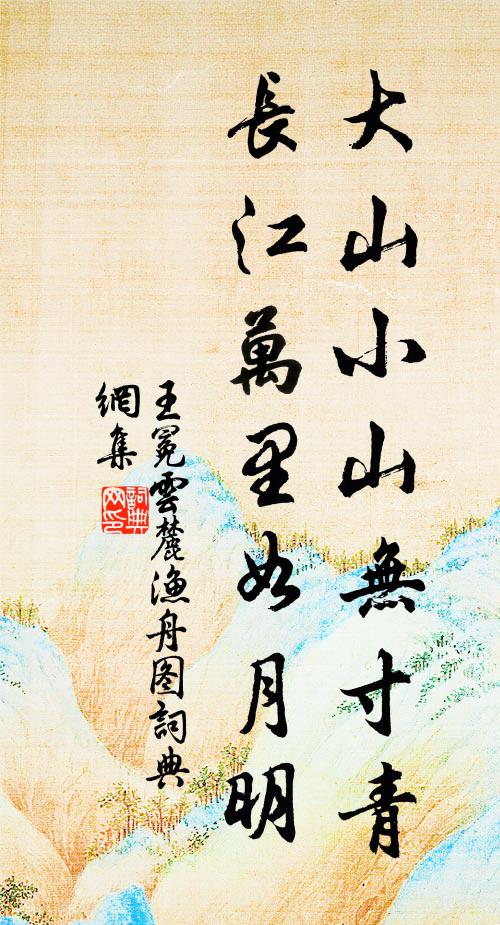 大山小山無寸青
長江萬里如月明
王冕雲麓漁舟图詞典
網集
詞典
网印